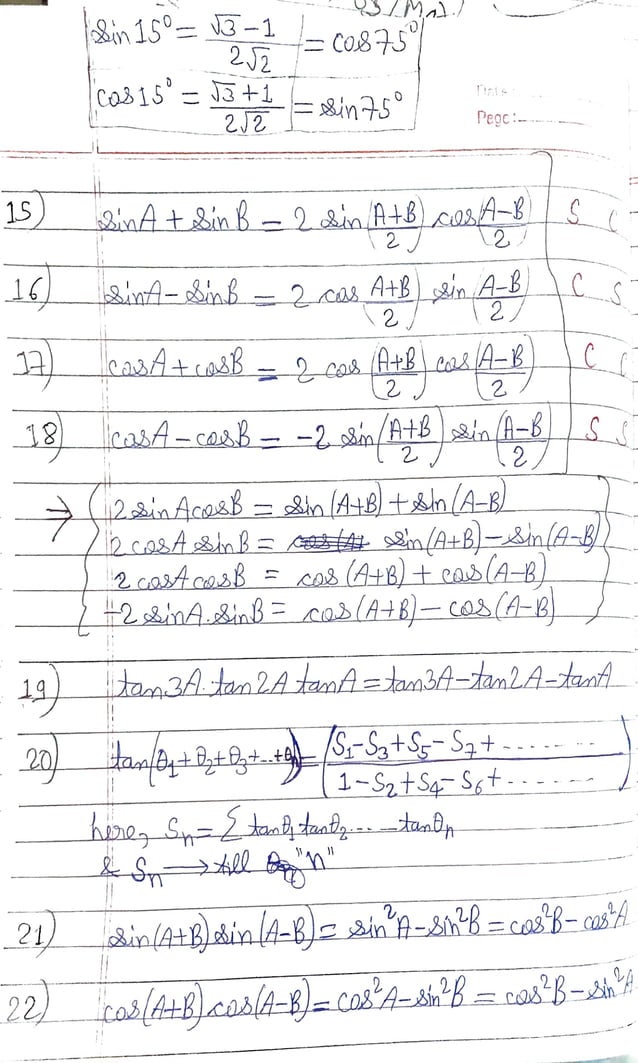 sin15° = (√3 − 1)/(2√2) = cos75°
cos15° = (√3 + 1)/(2√2) = sin75°
Page:
15) sinA + sinB = 2 sin((A+B)/2) cos((A−B)/2) S C
16) sinA − sinB = 2 cos((A+B)/2) sin((A−B)/2) C S
17) cosA + cosB = 2 cos((A+B)/2) cos((A−B)/2) C C
18) cosA − cosB = −2 sin((A+B)/2) sin((A−B)/2) S S
→ 2 sinA cosB = sin(A+B) + sin(A−B)
2 cosA sinB = sin(A+B) − sin(A−B)
2 cosA cosB = cos(A+B) + cos(A−B)
−2 sinA.sinB = cos(A+B) − cos(A−B)
19) tan3A.tan2A tanA = tan3A − tan2A − tanA
20) tan(θ₁+θ₂+θ₃+...+θn) = (S₁−S₃+S₅−S₇+........)/(1−S₂+S₄−S₆+......)
here, Sn = Σ tanθ₁ tanθ₂ ...−tanθn
& Sn → till "n"
21) sin(A+B) sin(A−B) = sin²A − sin²B = cos²B − cos²A
22) cos(A+B) cos(A−B) = cos²A − sin²B = cos²B − sin²A